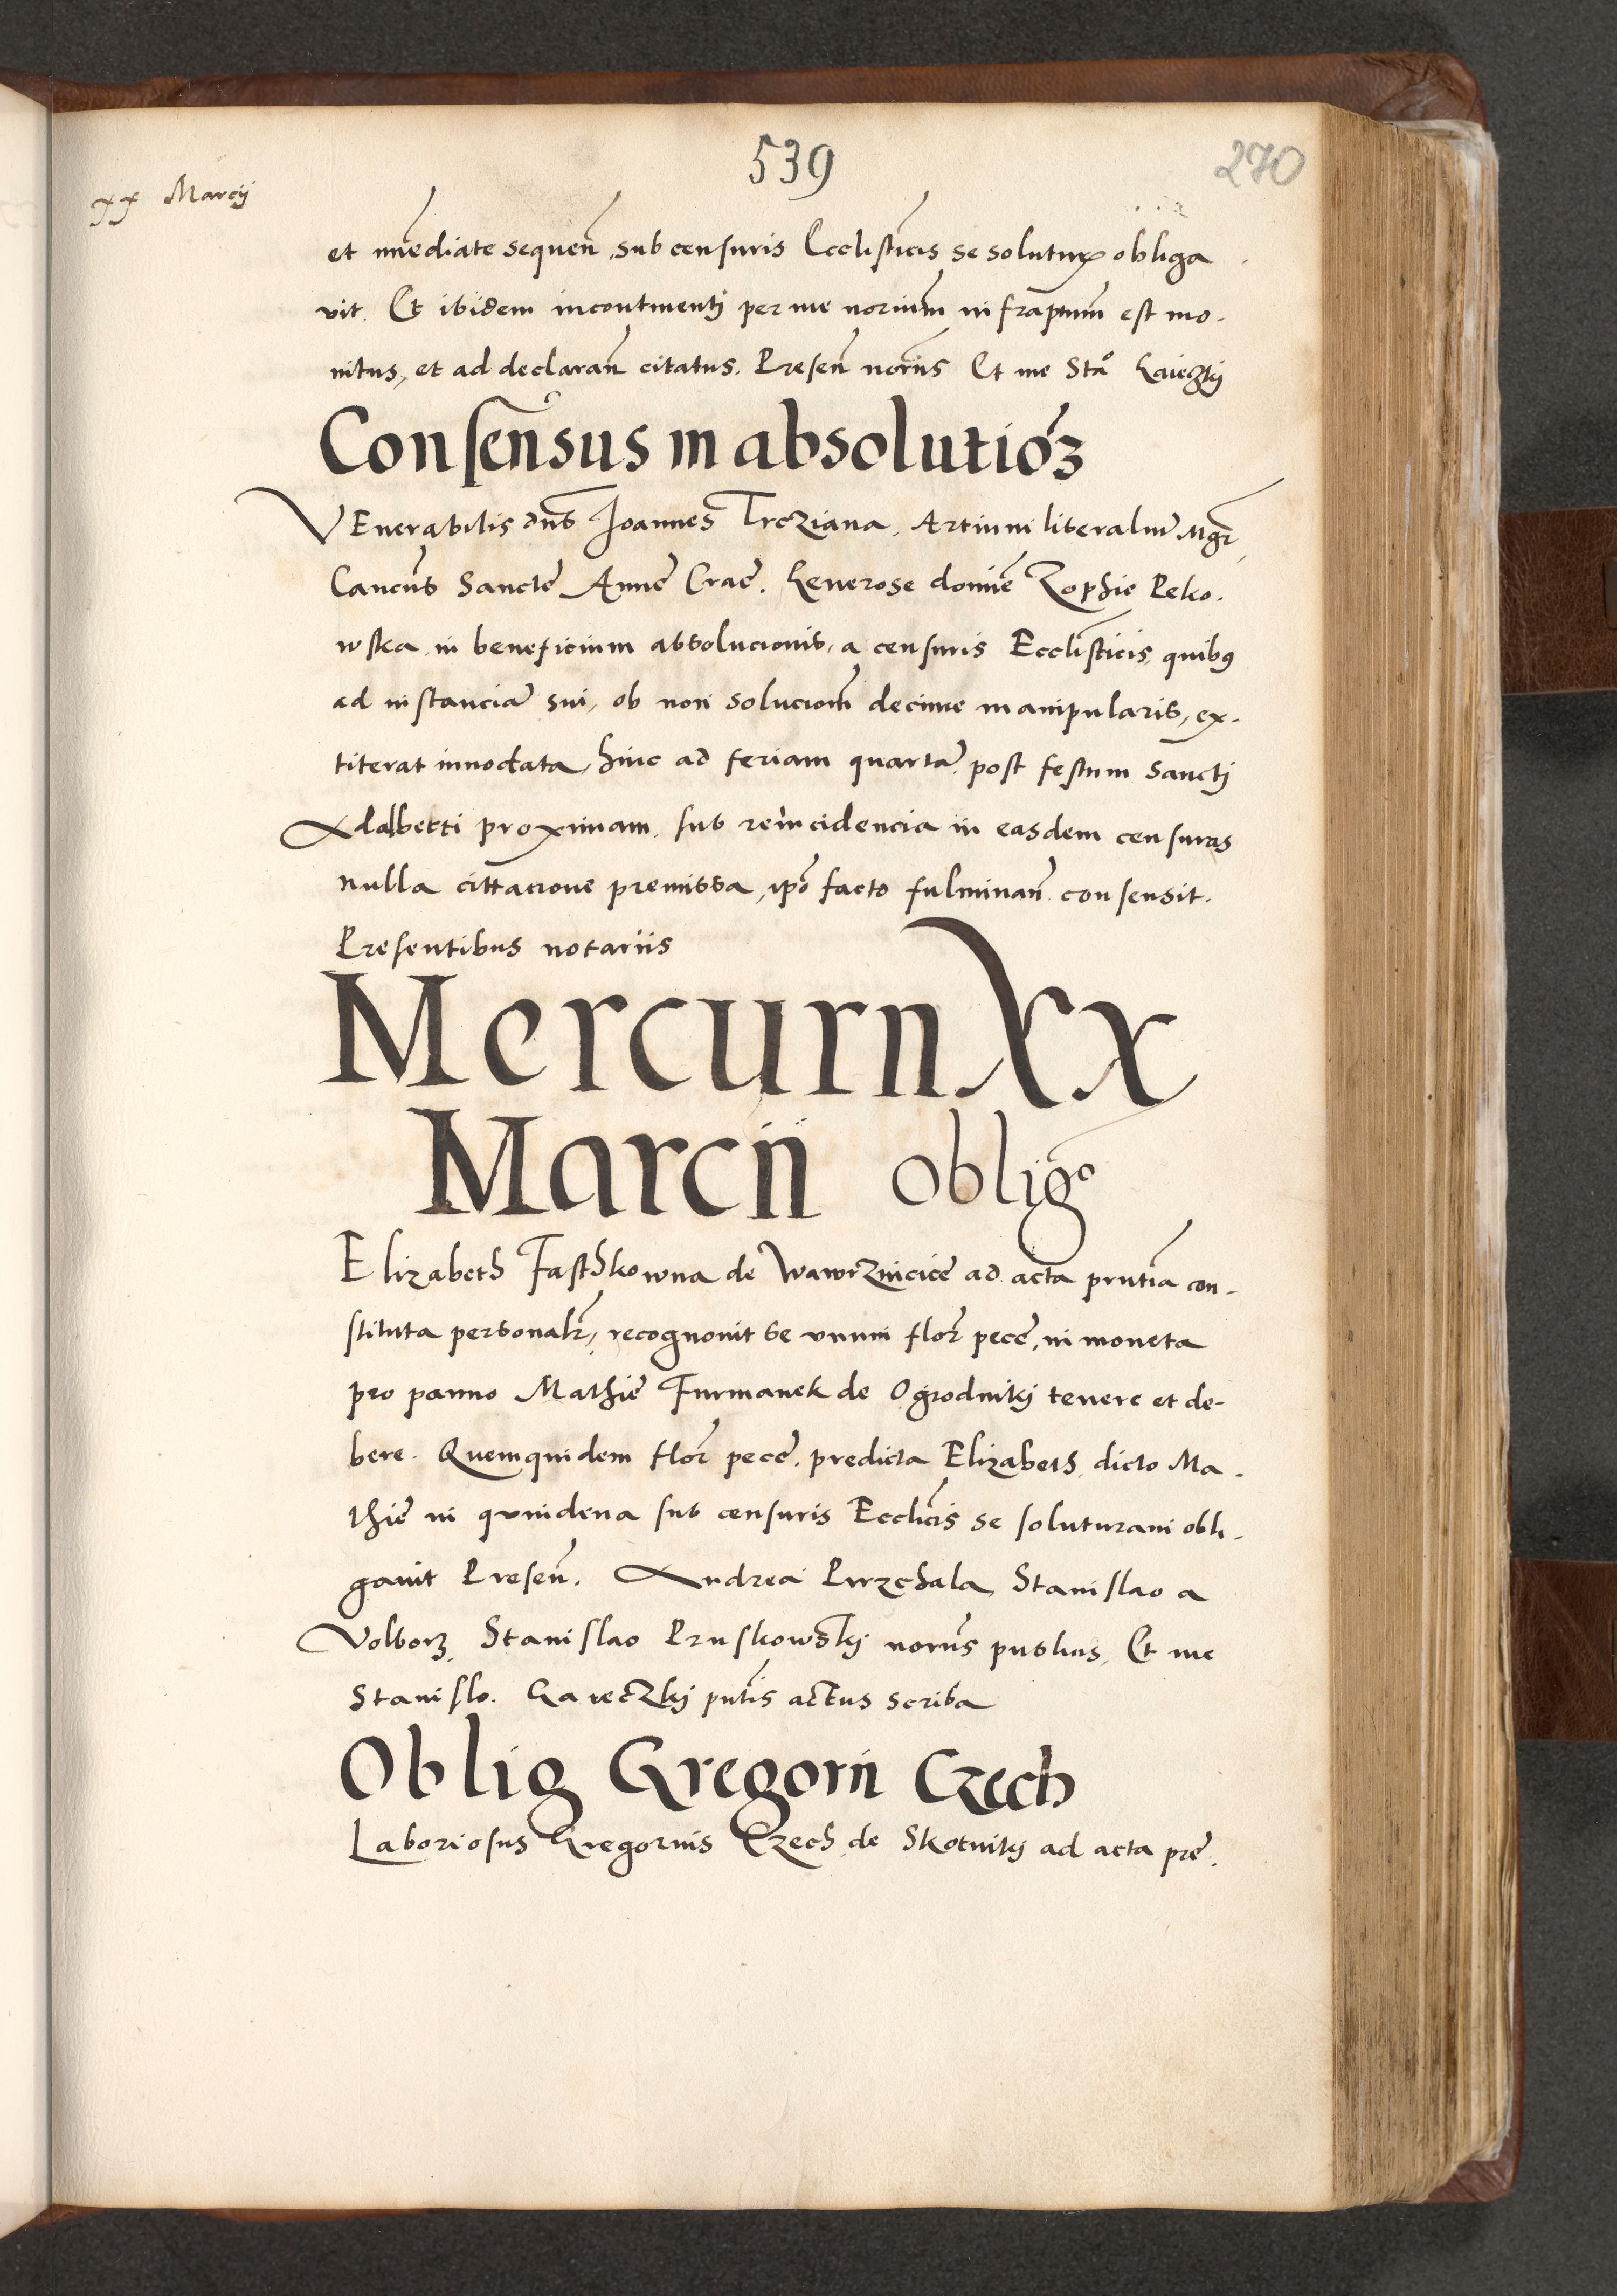 539
270
xx Marcij
et im̃ediate sequeñ, sub censuris Ecclīsticis se soluturꝝ obliga
vit. Et ibidem incontinentj per me noriūm infraptūm est mo-
nitus, et ad declarañ citatus. Preseñ norīis Et me Stāo
Consensus in absolutiōꝫ
VEnerabilis dn̄s Joannes Trcziana, Artium liberaliū Mgr̄
Cancūs Sanctē Annē Crac̄. Generose dominē Zophie Peko-
wska in beneficium absolucionis, a censuris Ecclīsticis, quibꝯ
ad instanciā sui, ob non solucion̄m decime manipularis, ex-
titerat innodata, hinc ad feriam quartā post festum Sanctj
Adalberti proximam, sub reincidencia in easdem censuras
nulla cittacione premissa, ip̄o facto fulminañ consensit.
Presentibus notariis
Mercurii xx
Marcii obligo
Elizabeth Fasthkowna de Wawrzincicē ad acta pn̄tia con-
stituta personalr̄, recognouit se vnum flor̄ pecc̄, in moneta
pro panno Mathiē Furmanek de Ogrodnikj tenere et de-
bere. Quemquidem flor̄ pecc̄. predicta Elizabeth, dicto Ma-
thiē in quindena sub censuris Ecclīcis se soluturam obli-
gauit Preseñ. Andrea Pirzchala, Stanislao a
Volborz, Stanislao Pruskowskj norīis publicis, Et me
Stanislo. Gaweczkj pn̄tis actus scriba
Oblig Gregorii Czech
Laboriosus Gregorius Czech, de Skotnikj ad acta pre-